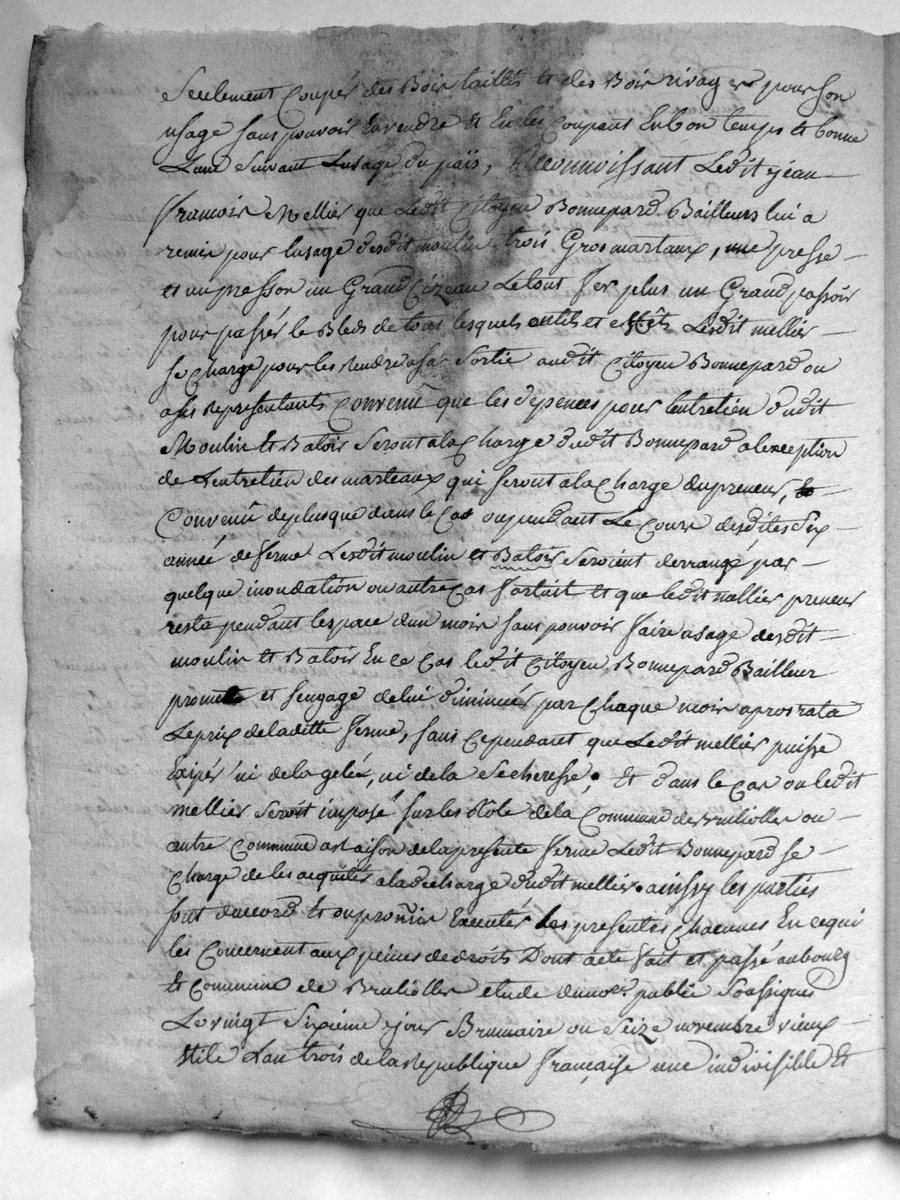 Seulement Coupér des Bois taillis et des Bois rivages pour son
usage sans pouvoir En vendre et En les Coupant En bon temps et bonne
Lune Suivant Lusage du païs, Reconnoissant Ledit jean
francois Mellier que Ledit Citoyen Bonnepard Bailleurs lui a
remis pour lusage desdit moulin trois Gros martaux, une presse
et un presson un Grand Cizeau Letout fer plus un Grand passoir
pour passér le Bled de tous lesquels outils et effets Ledit mellier
se Charge pour les Rendre a sa Sortie audit Citoyen Bonnepard ou
a ses representants Convenu que les depences pour lentretien dudit
Moulin et Batoir Seront a la Charge dudit Bonnepard a lexception
de Lentretien des marteaux qui seront a la Charge du preneur, et
Convenu de plus que dans le Cas ou pendant Le Cours desdites Six
année de ferme Lesdit moulin et Batoir Seroient derrangé par
quelque inondation ou autre Cas fortuit et que ledit mellier preneur
resta pendant lespace dun mois sans pouvoir faire usage desdit
moulin et Batoir En ce Cas ledit Citoyen Bonnepard Bailleur
promet et sengage de lui diminuér par Chaque mois a prorata
Le prix de laditte ferme, sans Cependant que Ledit mellier puisse
ni de la gelée, ni de la Secheresse; et dans le Cas ou ledit
mellier Seroit imposé sur les Role de la Commune de Brulliolles ou
autre Commune a Raison de la presente ferme Ledit Bonnepard se
Charge de les acquiter a la decharge dudit mellier. ainssy les parties
sont daccord et ont promis Executér Les presentes Chacunes En ce qui
les Concernent aux peines de droits Dont acte fait et passé au bourg
et Commune de Brulliolles etude du no.re public Soussigné
Le vingt Sixiéme jour Brumaire ou Seize novembre vieux
stile Lan trois de la Republique française une indivisible et